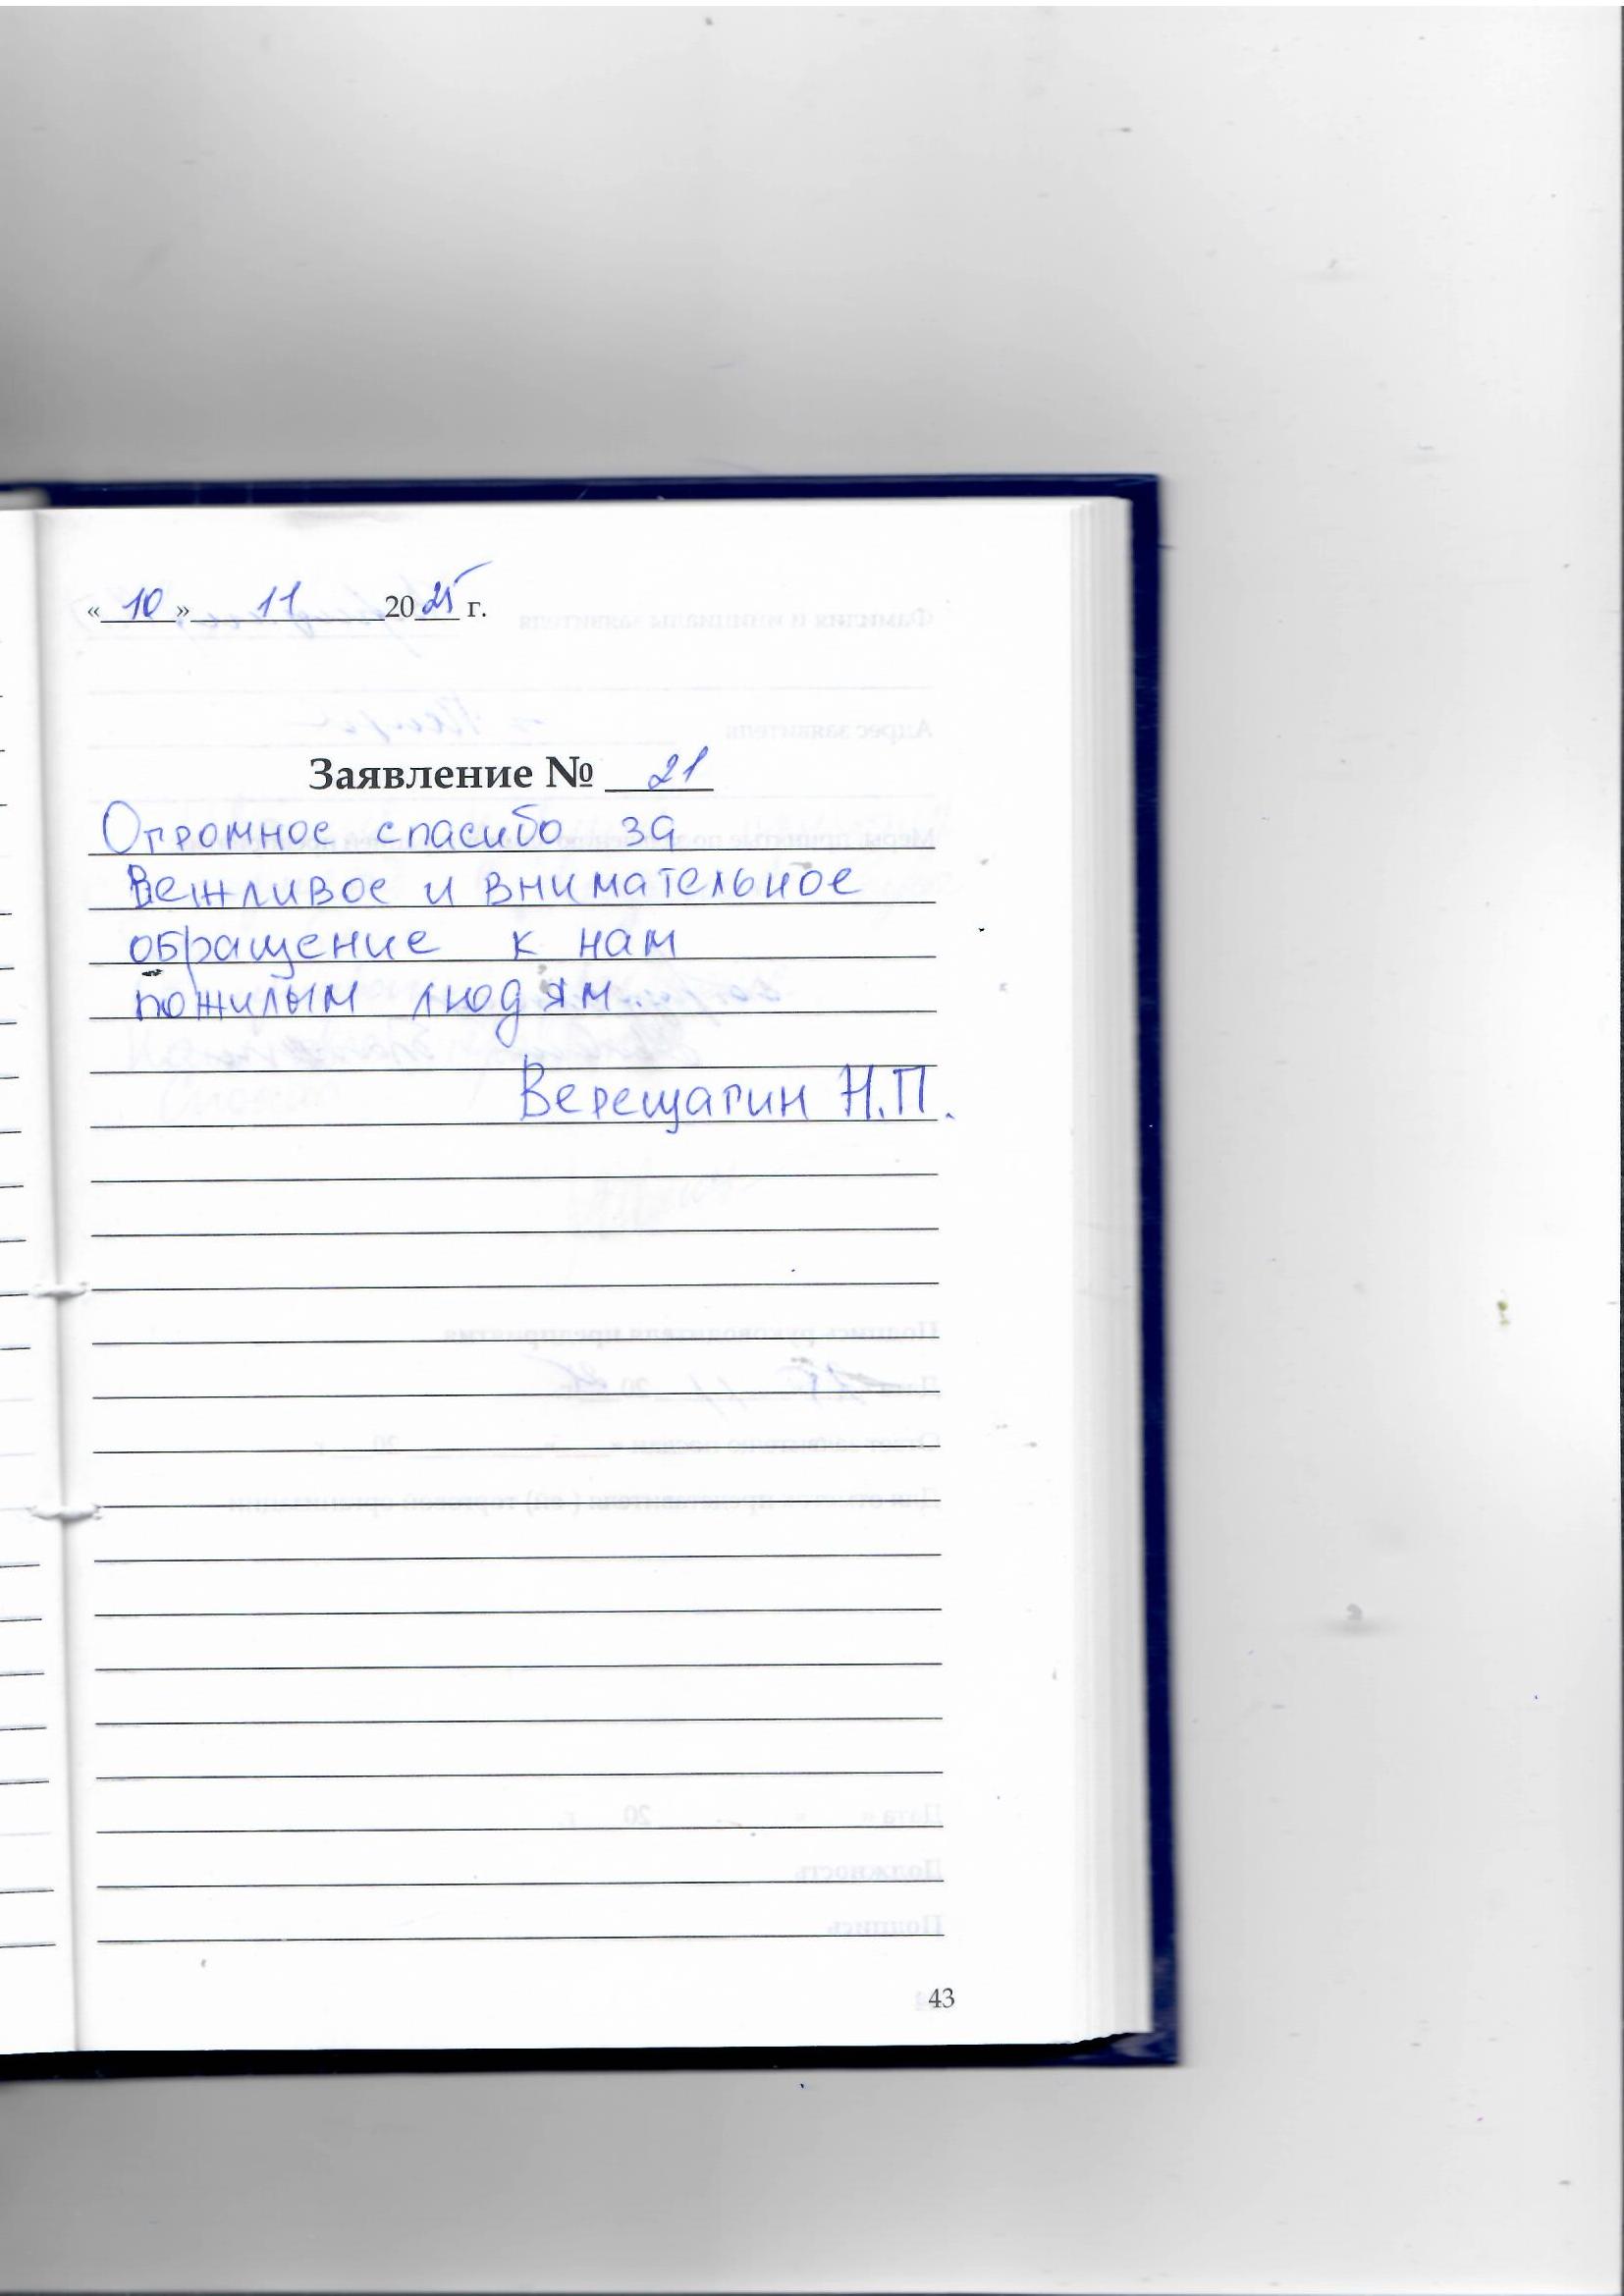 «10» 11 2025 г.
Заявление № 21
Огромное спасибо за
Вежливое и внимательное
обращение к нам
пожилым людям.
Верещагин Н.П.
43